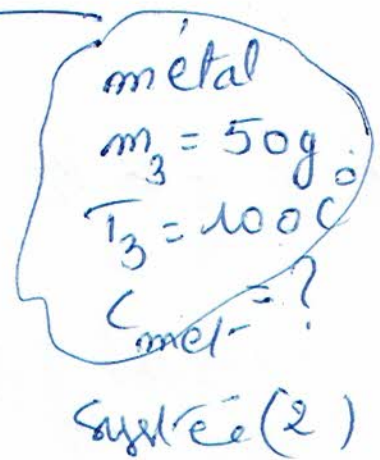 métal
m₃ = 50g
T₃ = 100°C
C met = ?
Système (2)